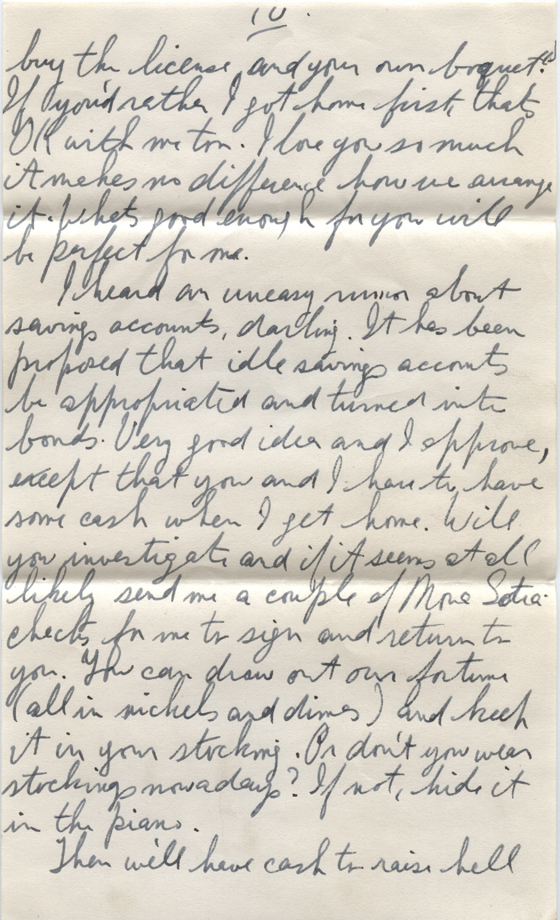 10.
buy the license, and your own boquet."
If you'd rather I got home first, that's
OK with me too. I love you so much
it makes no difference how we arrange
it. What's good enough for you will
be perfect for me.
I heard an uneasy rumor about
savings accounts, darling. It has been
proposed that idle savings accounts
be appropriated and turned into
bonds. Very good idea and I approve,
except that you and I have to have
some cash when I get home. Will
you investigate and if it seems at all
likely send me a couple of
checks for me to sign and return to
you. You can draw out our fortune
(all in nickels and dimes) and keep
it in your stocking. Or don't you wear
stockings nowadays? If not, hide it
in the piano.
Then we'll have cash to raise hell